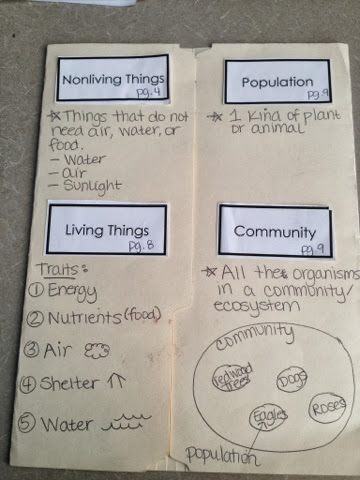 Nonliving Things
pg.4
* Things that do not
need air, water, or
food.
- Water
- air
- Sunlight
Population
pg.9
* 1 kind of plant
or animal
Living Things
pg.8
Traits:
① Energy
② Nutrients (food)
③ Air
④ Shelter
⑤ Water
Community
pg.9
* All the organisms
in a community/
ecosystem
community
redwood
trees
Dogs
Eagles
Roses
population